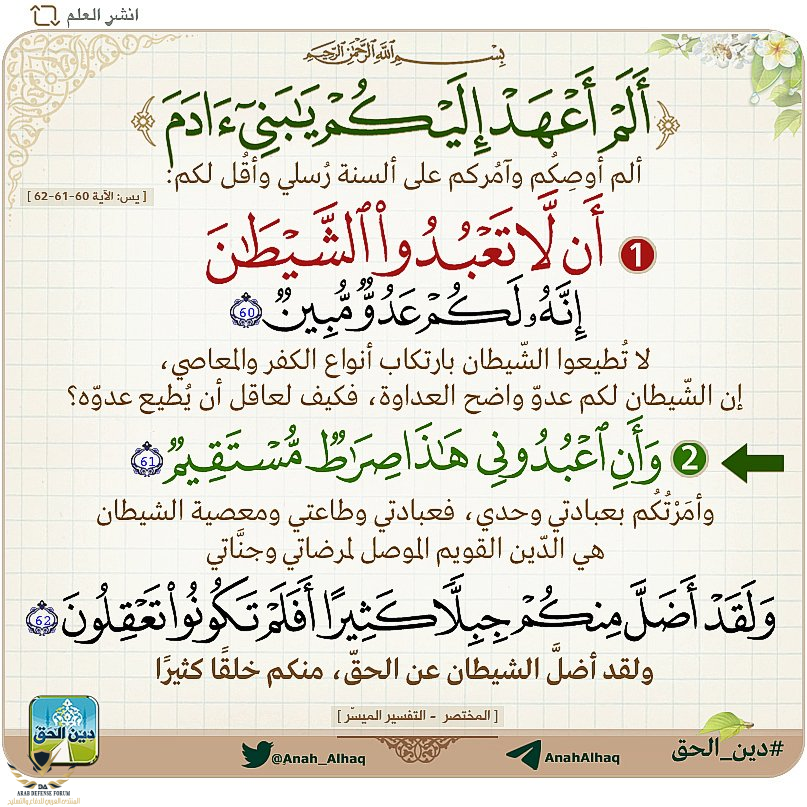 انشر العلم
بِسْمِ اللَّهِ الرَّحْمَٰنِ الرَّحِيمِ
أَلَمْ أَعْهَدْ إِلَيْكُمْ يَٰبَنِىٓ ءَادَمَ
ألم أوصِكُم وآمُركم على ألسنة رُسلي وأقُل لكم:
[ يس: الآية 60-61-62 ]
1 أَن لَّا تَعْبُدُوا۟ ٱلشَّيْطَٰنَ
إِنَّهُۥ لَكُمْ عَدُوٌّ مُّبِينٌ 60
لا تُطيعوا الشّيطان بارتكاب أنواع الكفر والمعاصي،
إن الشّيطان لكم عدوّ واضح العداوة، فكيف لعاقل أن يُطيع عدوّه؟
2 وَأَنِ ٱعْبُدُونِى هَٰذَا صِرَٰطٌ مُّسْتَقِيمٌ 61
وأمَرْتُكُم بعبادتي وحدي، فعبادتي وطاعتي ومعصية الشيطان
هي الدّين القويم الموصل لمرضاتي وجنَّاتي
وَلَقَدْ أَضَلَّ مِنكُمْ جِبِلًّا كَثِيرًا أَفَلَمْ تَكُونُوا۟ تَعْقِلُونَ 62
ولقد أضلَّ الشيطان عن الحقّ، منكم خلقًا كثيرًا
[ المختصر - التفسير الميسّر ]
دين الحق
@Anah_Alhaq
AnahAlhaq
#دين_الحق
DA
ARAB DEFENSE FORUM
المنتدى العربي للدفاع والتسليح